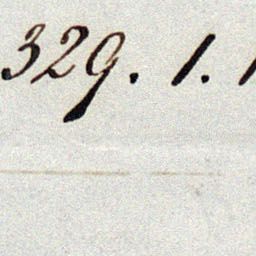 329. 1. 1